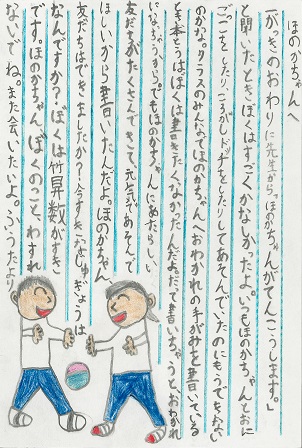 ほのかちゃんへ
一がっきのおわりに先生から、「ほのかちゃんがてんこうします。」
と聞いたとき、ぼくはすごくかなしかったよ。いつもほのかちゃんとおに
ごっこをしたり、ころがしドッチをしたりしてあそんでいたのにもうできない
のかな。クラスのみんなでほのかちゃんへおわかれの手がみを書いている
とき本とうはぼくは書きたくなかったんだよ。だって書いちゃうと、おわかれ
になっちゃうから。でもほのかちゃんにあたらしい
友だちがたくさんできて、元気であそんで
ほしいから書いたんだよ。ほのかちゃん
友だちはできましたか?今すきなじゅぎょうは
なんですか?ぼくは竹昇数がすき
です。ほのかちゃん、ぼくのこと、わすれ
ないでね。また会いたいよ。ふうたより